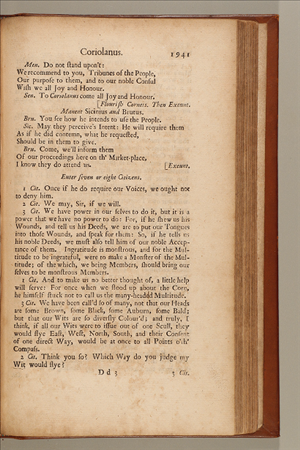 Coriolanus. 1941
Men. Do not stand upon't:
We recommend to you, Tribunes of the People,
Our purpose to them, and to our noble Consul
Wish we all Joy and Honour.
Sen. To Coriolanus come all Joy and Honour.
[Flourish Cornets. Then Exeunt.
Manent Sicinius and Brutus.
Bru. You see how he intends to use the People.
Sic. May they perceive's Intent: He will require them
As if he did contemn, what he requested,
Should be in them to give.
Bru. Come, we'll inform them
Of our proceedings here on th' Market-place,
I know they do attend us. [Exeunt.
Enter seven or eight Citizens.
1 Cit. Once if he do require our Voices, we ought not
to deny him.
2 Cit. We may, Sir, if we will.
3 Cit. We have power in our selves to do it, but it is a
power that we have no power to do: For, if he shew us his
Wounds, and tell us his Deeds, we are to put our Tongues
into those Wounds, and speak for them: So, if he tells us
his noble Deeds, we must also tell him of our noble Accep-
tance of them. Ingratitude is monstrous, and for the Mul-
titude to be ingrateful, were to make a Monster of the Mul-
titude; of the which, we being Members, should bring our
selves to be monstrous Members.
1 Cit. And to make us no better thought of, a little help
will serve: For once when we stood up about the Corn,
he himself stuck not to call us the many-headed Multitude.
3 Cit. We have been call'd so of many, not that our Heads
are some Brown, some Black, some Auburn, some Bald;
but that our Wits are so diversly Colour'd; and truly, I
think, if all our Wits were to issue out of one Scull, they
would flye East, West, North, South, and their Consent
of one direct Way, would be at once to all Points o'th'
Compass.
2 Cit. Think you so? Which Way do you judge my
Wit would flye?
D d 3 3 Cit.